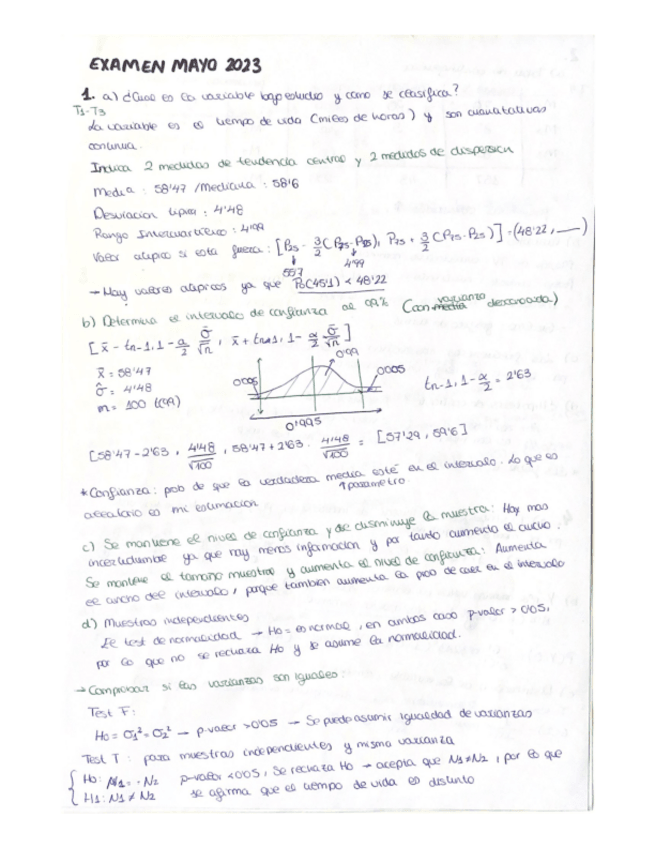 EXAMEN MAYO 2023
1. a) ¿Cual es la variable bajo estudio y como se clasifica?
T1-T3
La variable es el tiempo de vida (miles de horas) y son cuantitativas
continua.
Indica 2 medidas de tendencia central y 2 medidas de dispersion
Media : 58'47 / Mediana : 58'6
Desviacion tipica : 4'48
Rango Intercuartilico : 4'99
Valor atipico si esta fuera : [P25 - 3/2 (P75-P25), P75 + 3/2 (P75-P25)] = (48'22, __)
557 4'99
→ Hay valores atipicos ya que P0(45'1) < 48'22
b) Determina el intervalo de confianza al 99% (con media varianza desconocida)
[x̄ - tn-1, 1-α/2 σ̂/√n , x̄ + tn-1, 1-α/2 σ̂/√n]
x̄ = 58'47
σ̂ = 4'48
n = 100
0'005 0'99 0'005
0'995
tn-1, 1-α/2 = 2'63
[58'47 - 2'63 · 4'48/√100 , 58'47 + 2'63 · 4'48/√100 = [57'29, 59'6]
*Confianza : prob de que la verdadera media esté en el intervalo. Lo que es
↑parametro
aleatorio es mi estimacion
c) Se mantiene el nivel de confianza y disminuye la muestra: Hay mas
incertidumbre ya que hay menos informacion y por tanto aumenta el ancho.
Se mantiene el tamaño muestral y aumenta el nivel de confianza: Aumenta
el ancho del intervalo, porque tambien aumenta la prob de caer en el intervalo
d) Muestras independientes
test de normalidad → H0 = es normal, en ambos caso p-valor > 0'05,
por lo que no se rechaza H0 y se asume la normalidad.
→ Comprobar si las varianzas son iguales:
Test F:
H0 = σ1² = σ2² → p-valor > 0'05 → Se puede asumir igualdad de varianzas
Test T : para muestras independientes y misma varianza
H0: N1 = N2 p-valor < 0'05, Se rechaza H0 → acepta que N1 ≠ N2, por lo que
H1: N1 ≠ N2 se afirma que el tiempo de vida es distinto